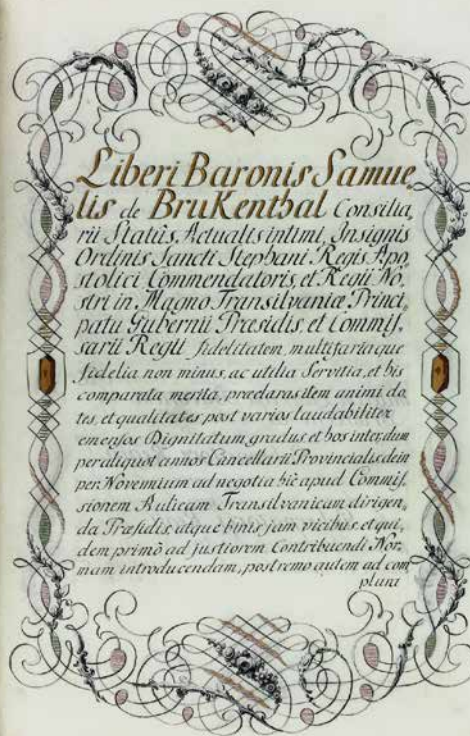 Liberi Baronis Samue„
lis de BruKenthal Consilia„
rii Statûs, Actualis intimi, Insignis
Ordinis Sancti Stephani Regis Apo„
stolici Commendatoris, et Regii No„
stri in Magno Transilvaniæ Princi„
patu Gubernii Præsidis, et Commis„
sarii Regii fidelitatem, multifariaque
fidelia non minus, ac utilia Servitia, et his
comparata merita, præclaras item animi do„
tes, et qualitates post varios laudabiliter
emersos Dignitatum gradus et hos inter, dum
per aliquot annos Cancellarii Provincialis, dein
per Novennium ad negotia hic apud Commis„
sionem Aulicam Transilvanicam dirigen„
da Præsidis, atque binis jam vicibus, et qui„
dem primò ad justiorem Contribuendi Nor„
mam introducendam, postremo autem ad com
plura